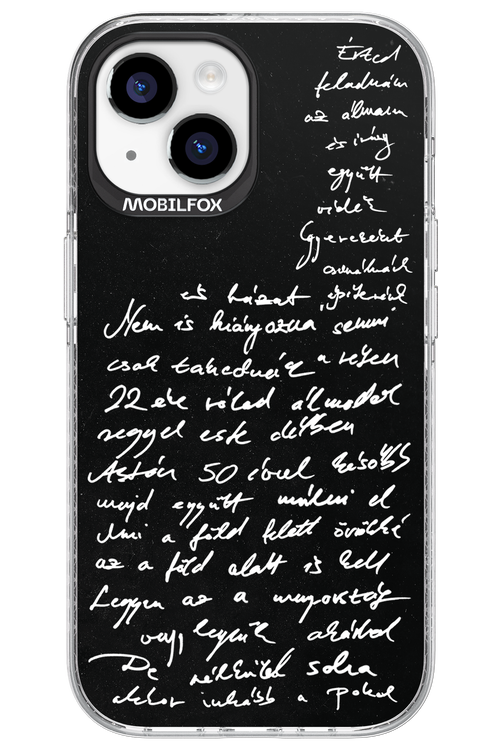 MOBILFOX
Érted
feladnám
az álmaim
és így
együtt
veled
Gyerekeket
csinálnánk
és házat építenénk
Nem is hiányozna semmi
csak takednék a
22 éve rólad álmodok
reggel este délben
Aztán 50 évvel később
majd együtt múlni el
Ami a föld felett örökké
az a föld alatt is kell
Legyen az a mennyország
vagy legyünk akárhol
De nélküled soha
akkor inkább a pokol